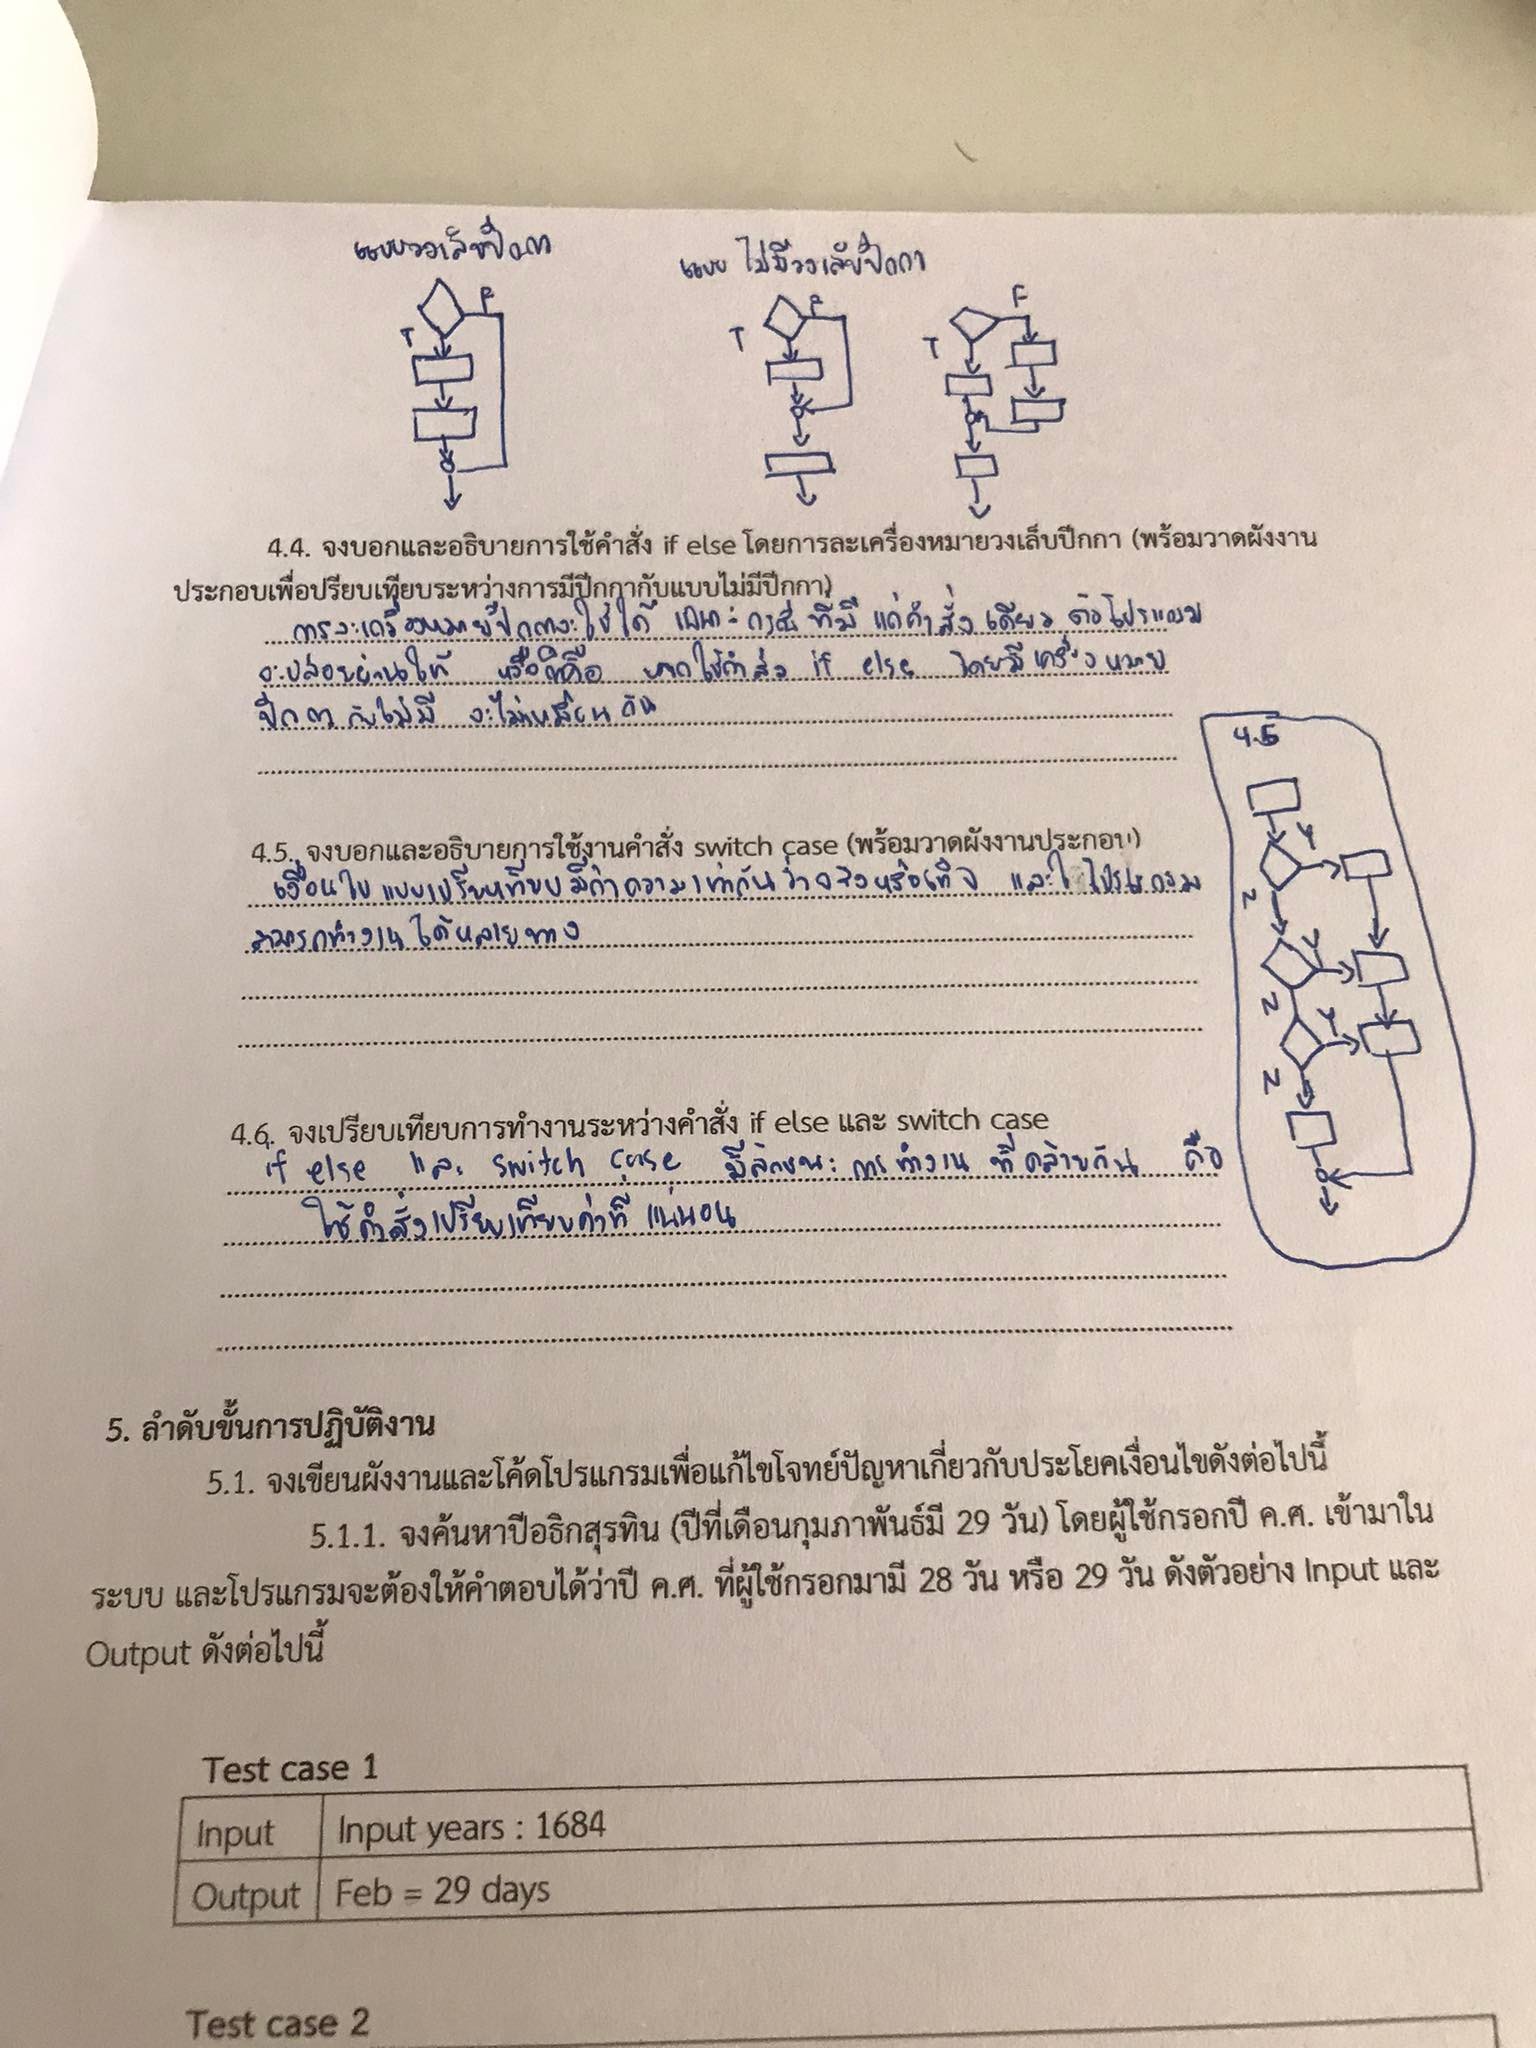 แบบวงเล็บปีกกา
แบบ ไม่มีวงเล็บปีกกา
F
T
F
T
F
T
4.4. จงบอกและอธิบายการใช้คำสั่ง if else โดยการละเครื่องหมายวงเล็บปีกกา (พร้อมวาดผังงาน
ประกอบเพื่อปรียบเทียบระหว่างการมีปีกกากับแบบไม่มีปีกกา)
การละเครื่องหมายปีกกาจะใช้ได้ เฉพาะกรณี ที่มี แค่คำสั่ง เดียว ต่อโปรแกรม
จะปล่อยผ่านให้ หรือก็คือ หากใช้คำสั่ง if else โดยมีเครื่องหมาย
ปีกกา กับไม่มี จะไม่เหมือนกัน
4.5
4.5. จงบอกและอธิบายการใช้งานคำสั่ง switch case (พร้อมวาดผังงานประกอบ)
เงื่อนไข แบบเปรียบเทียบมีค่าความเท่ากันว่าจริงหรือเท็จ และให้โปรแกรม
สามารถทำงานได้หลายทาง
Y
N
Y
N
Y
N
4.6. จงเปรียบเทียบการทำงานระหว่างคำสั่ง if else และ switch case
if else และ switch case มีลักษณะการทำงาน ที่คล้ายกัน คือ
ใช้คำสั่งเปรียบเทียบค่าที่ แน่นอน
5. ลำดับขั้นการปฏิบัติงาน
5.1. จงเขียนผังงานและโค้ดโปรแกรมเพื่อแก้ไขโจทย์ปัญหาเกี่ยวกับประโยคเงื่อนไขดังต่อไปนี้
5.1.1. จงค้นหาปีอธิกสุรทิน (ปีที่เดือนกุมภาพันธ์มี 29 วัน) โดยผู้ใช้กรอกปี ค.ศ. เข้ามาใน
ระบบ และโปรแกรมจะต้องให้คำตอบได้ว่าปี ค.ศ. ที่ผู้ใช้กรอกมามี 28 วัน หรือ 29 วัน ดังตัวอย่าง Input และ
Output ดังต่อไปนี้
Test case 1
Input Input years : 1684
Output Feb = 29 days
Test case 2